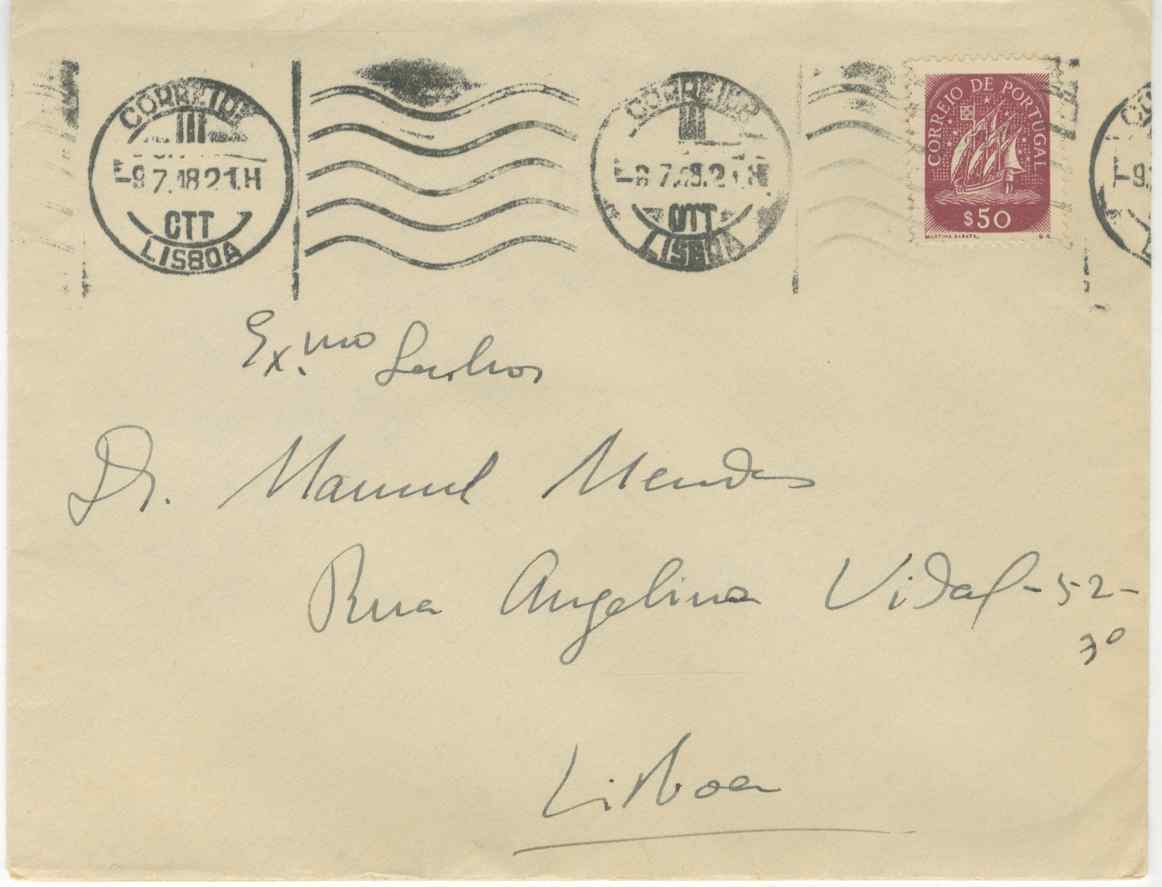 CORREIOS
III
-9.7.48.21.H
CTT
LISBOA
CORREIOS
III
-9.7.48.21.H
CTT
LISBOA
CORREIO DE PORTUGAL
$50
-9.
Ex.mo Senhor
Dr. Manuel Mendes
Rua Angelina Vidal - 52 -
3º
Lisboa